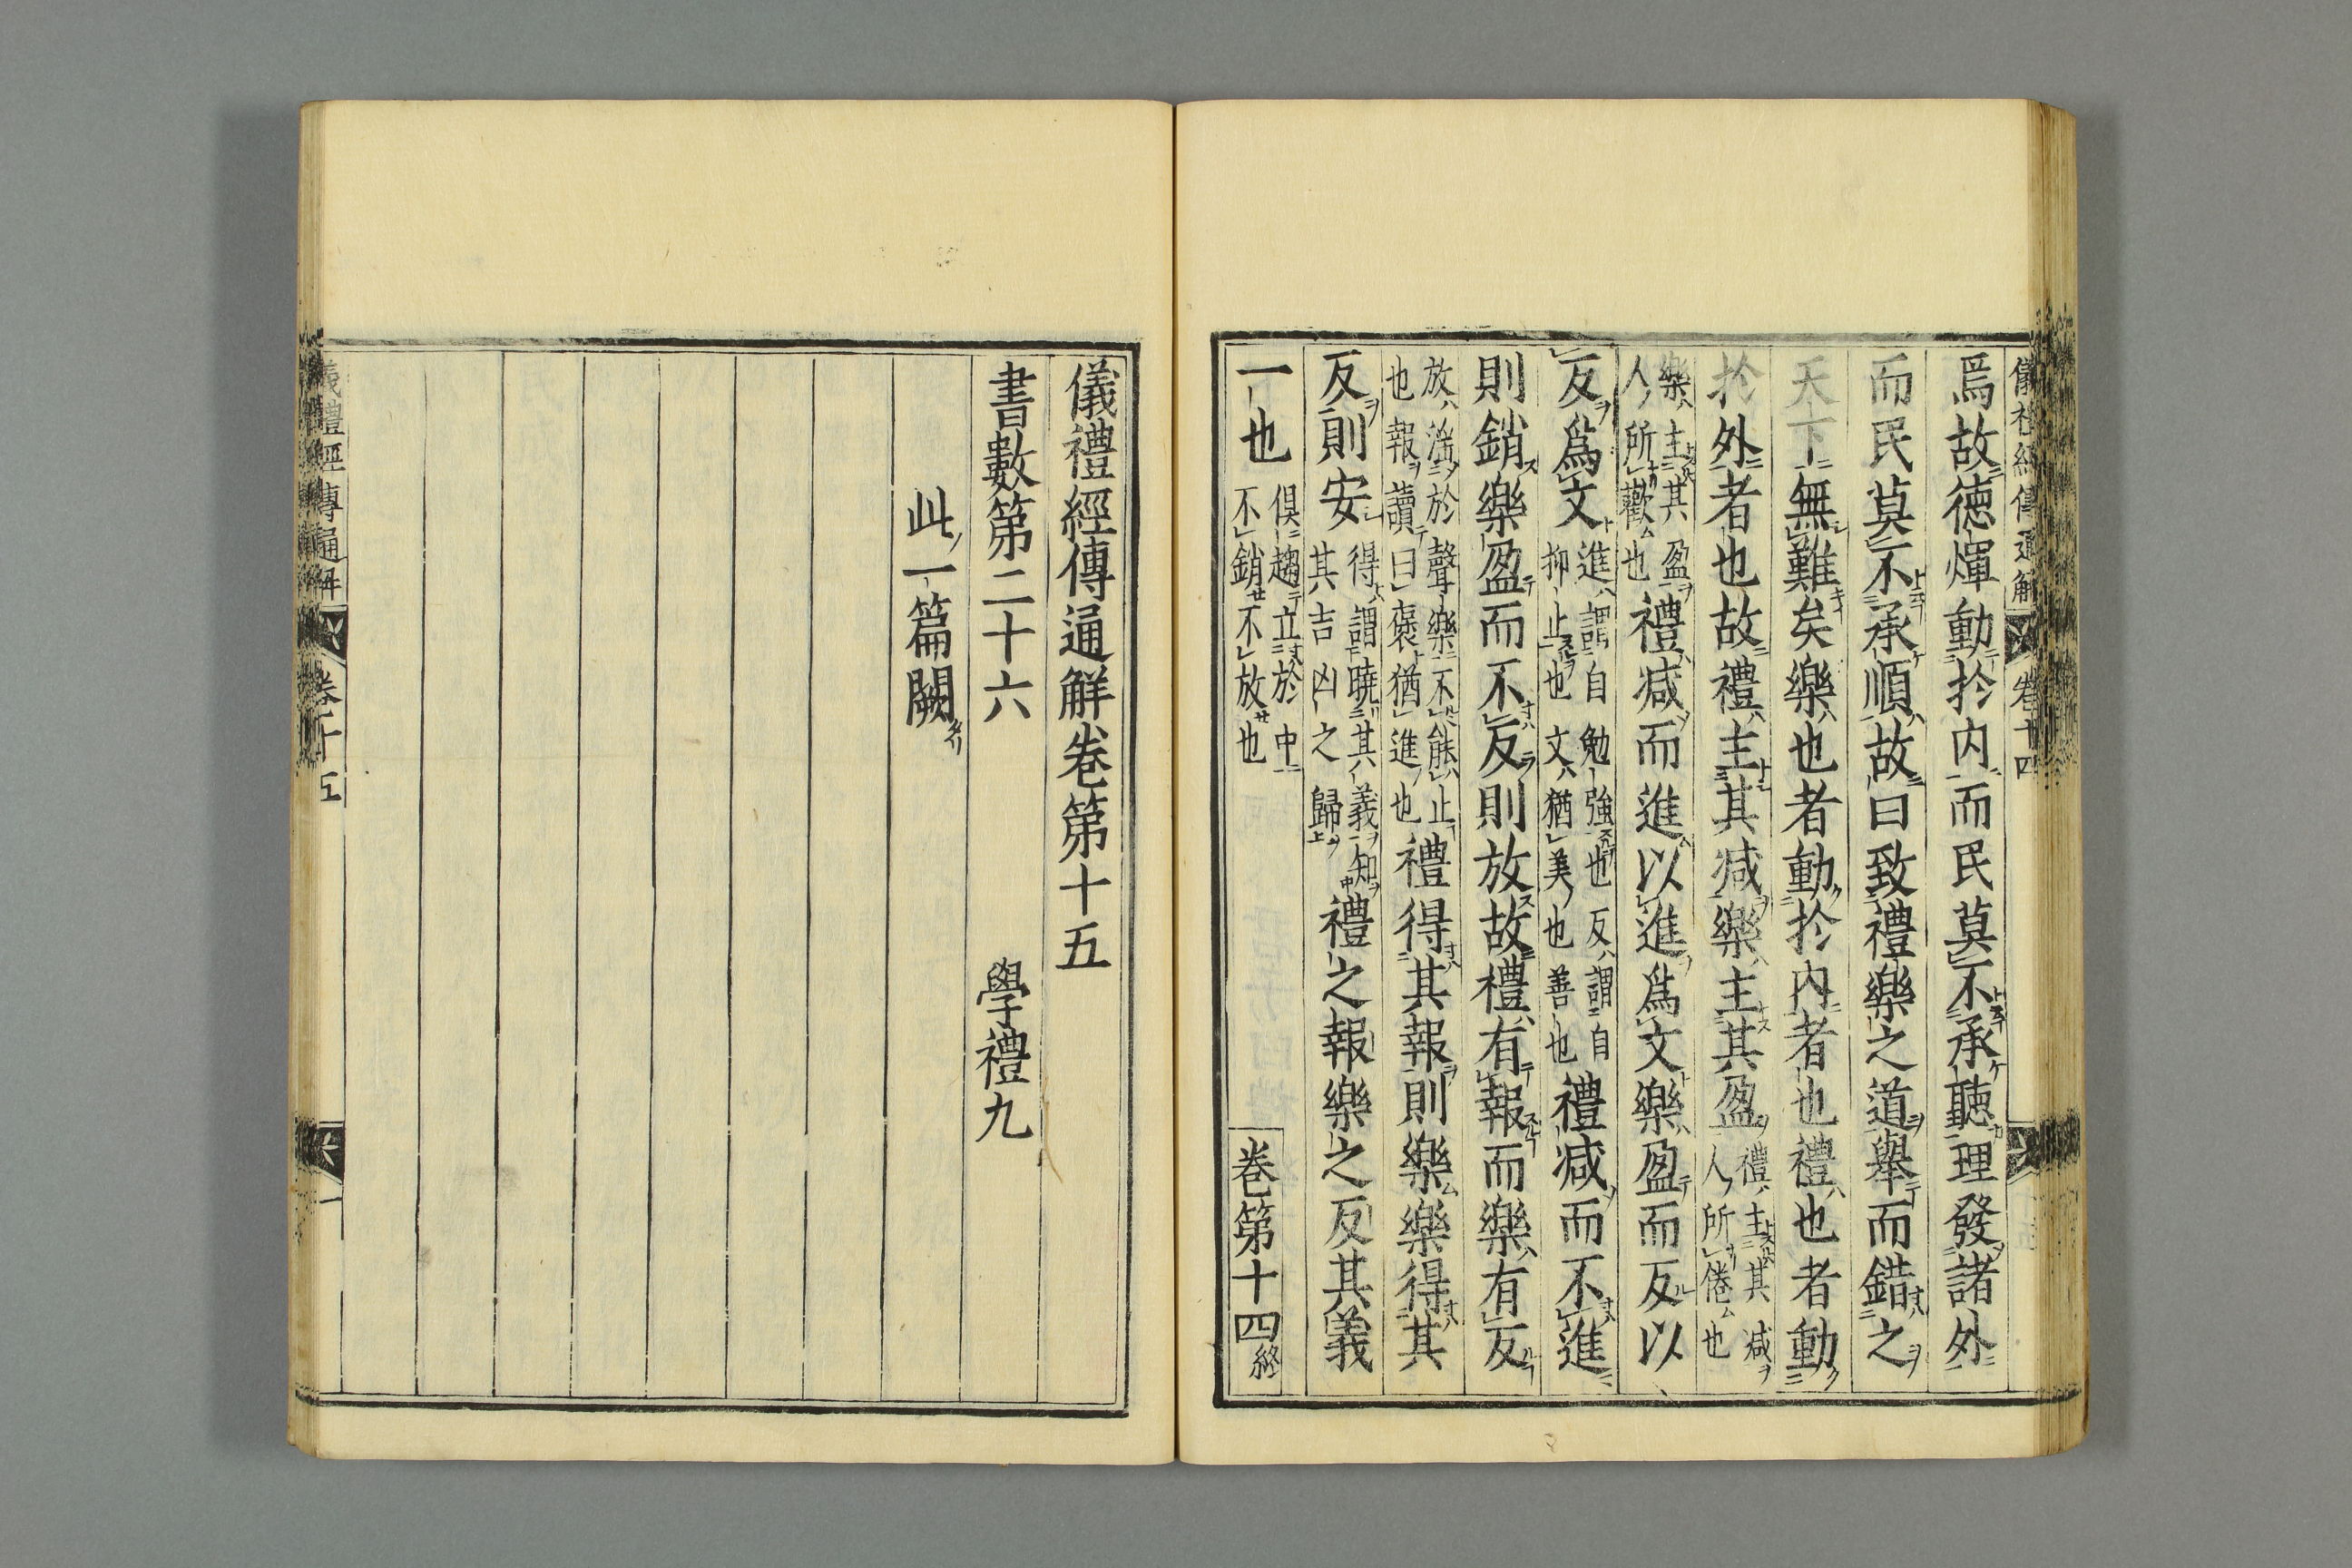 儀禮經傳通解 卷十四
焉故德煇動於内而民莫不承聽理發諸外
而民莫不承順故曰致禮樂之道舉而錯之
天下無難矣樂也者動於内者也禮也者動
於外者也故禮主其減樂主其盈禮主其減人所倦也
樂主其盈人所歡也禮減而進以進爲文樂盈而反以
反爲文進謂自勉強也反謂自抑止也文猶美也善也禮減而不進
則銷樂盈而不反則放故禮有報而樂有反
放淫於聲樂不能止也報讀曰褒猶進也禮得其報則樂樂得其
反則安得謂曉其義知其吉凶之歸禮之報樂之反其義
一也俱趨立於中不銷不放也 卷第十四終
儀禮經傳通解卷第十五
書數第二十六 學禮九
此一篇闕
儀禮經傳通解 卷十五 一